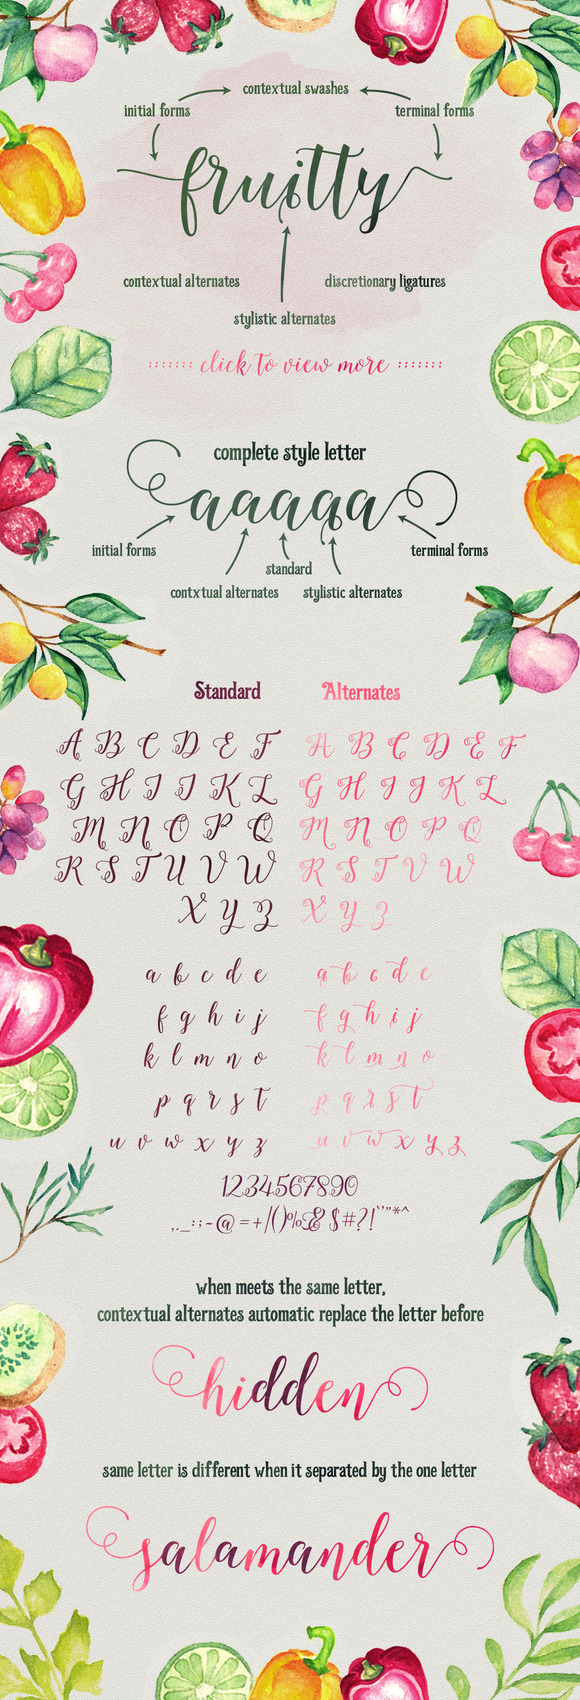 contextual swashes
initial forms
terminal forms
fruitty
contextual alternates
discretionary ligatures
stylistic alternates
::::::: click to view more :::::::
complete style letter
aaaaa
initial forms
terminal forms
standard
contxtual alternates
stylistic alternates
Standard
Alternates
A B C D E F
A B C D E F
G H I J K L
G H I J K L
M N O P Q
M N O P Q
R S T U V W
R S T V W
X Y Z
X Y Z
a b c d e
a b c d e
f g h i j
f g h i j
k l m n o
k l m n o
p q r s t
p q r s t
u v w x y z
u v w x y z
1234567890
,._:;-@=+/()%&$#?!`'"*^
when meets the same letter,
contextual alternates automatic replace the letter before
hidden
same letter is different when it separated by the one letter
salamander